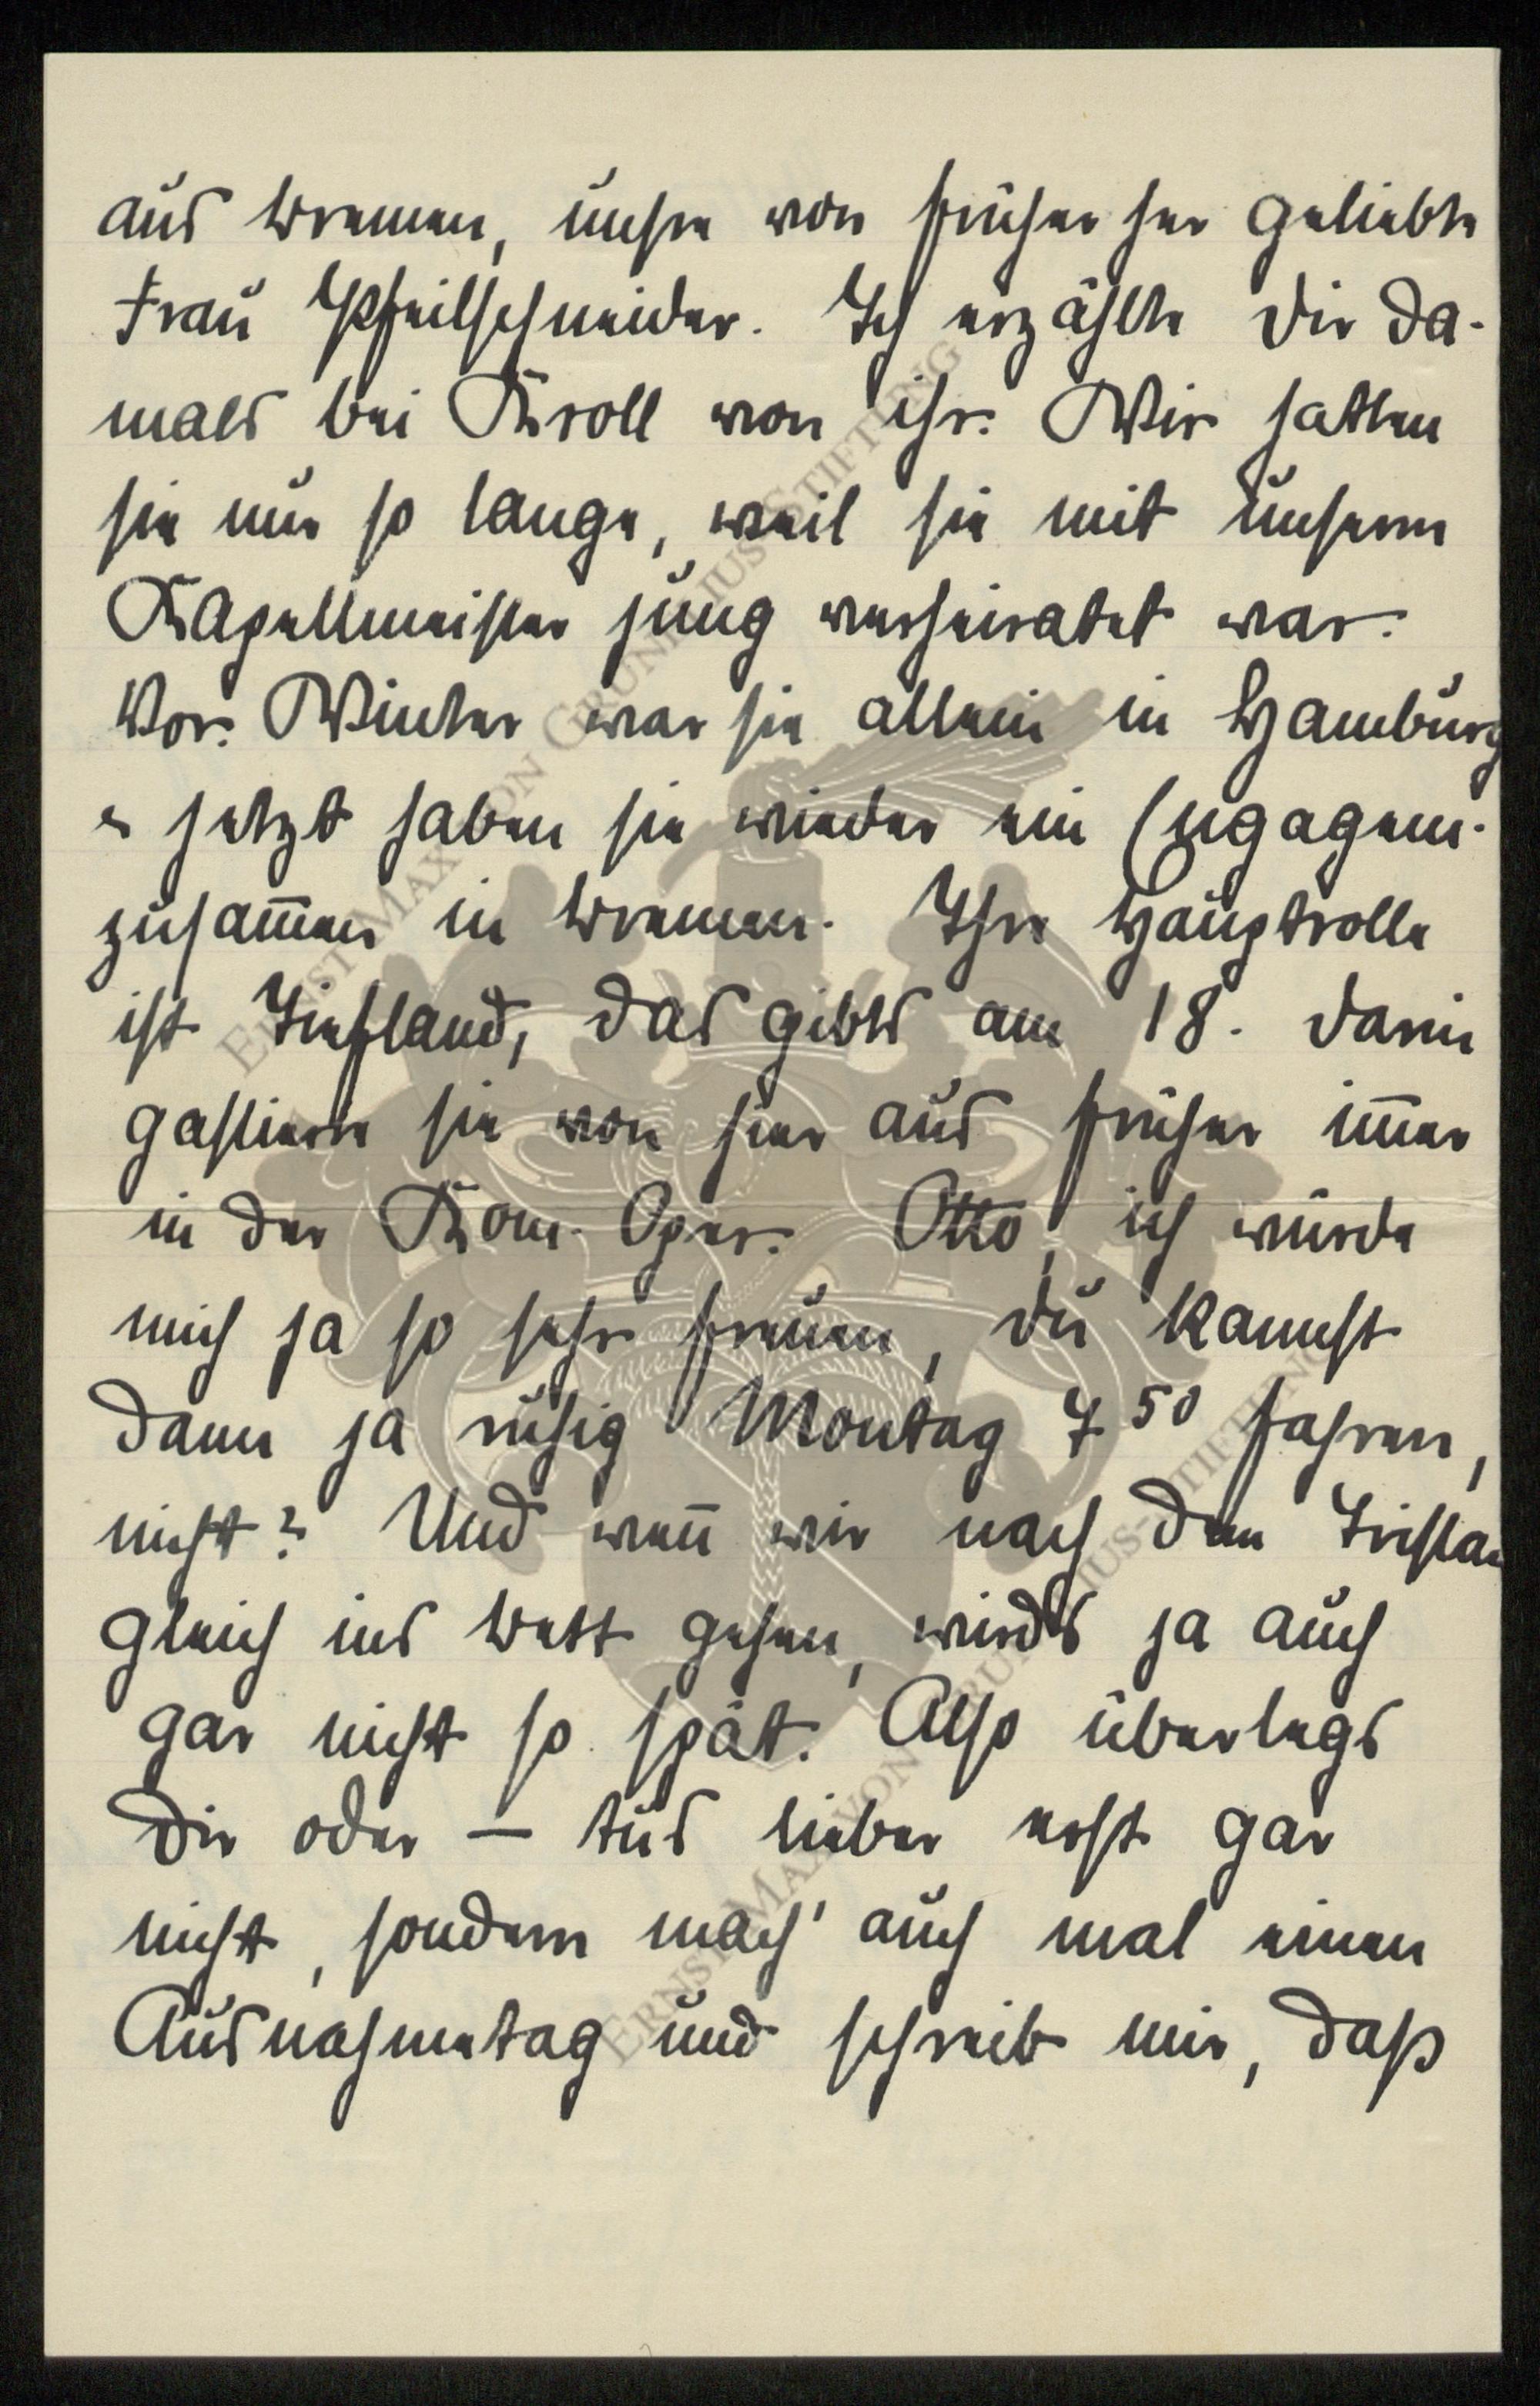 aus Bremen, unsre von früher her geliebte
Frau Pfeilschneider. Ich erzählte Dir da-
mals bei Kroll von ihr. Wir hatten
sie nur so lange, weil sie mit unserm
Kapellmeister jung verheiratet war.
Vor. Winter war sie allein in Hamburg
u jetzt haben sie wieder ein Engagem.
zusam̅en in Bremen. Ihre Hauptrolle
ist Tiefland, das gibts am 18. Darin
gastierte sie von hier aus früher im̅er
in der Kom. Oper. Otto, ich würde
mich ja so sehr freuen, Du kannst
dann ja ruhig Montag 7 50 fahren,
nicht? Und wen̅ wir nach dem Tristan
gleich ins Bett gehen, wirds ja auch
gar nicht so spät. Also überlegs
Dir oder – tus lieber erst gar
nicht, sondern mach' auch mal einen
Ausnahmetag und schreib mir, daß
ERNST MAX VON GRUNELIUS-STIFTUNG
ERNST MAX VON GRUNELIUS-STIFTUNG